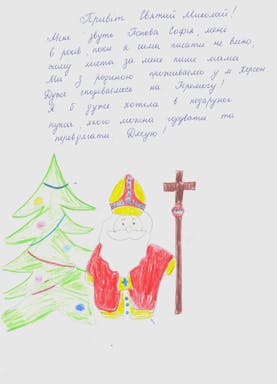 Привіт Святий Миколай!
Мене звуть Попова Софія, мені
6 років, поки я сама писати не вмію,
тому листа за мене пише мама
Ми з родиною проживаємо у м. Херсон
Дуже сподіваємось на Перемогу!
Я б дуже хотіла в подарунок
пупса, якого можна годувати та
перевдягати. Дякую!